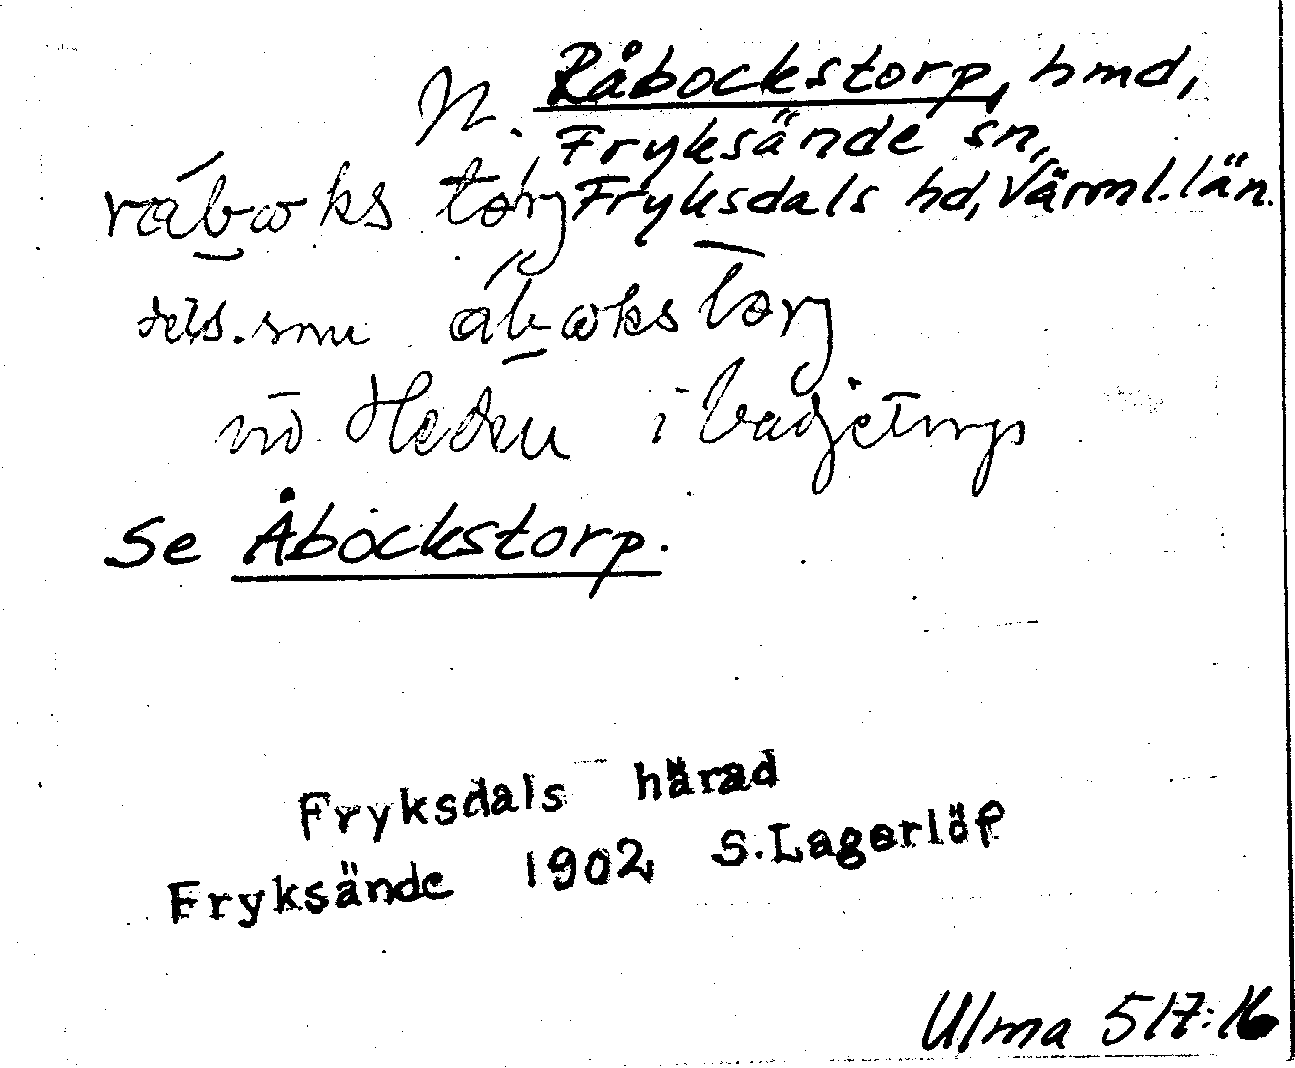 N. Råbockstorp, hmd,
Fryksände sn,
Fryksdals hd, Värml. län.
råboks torj
dets. som åbokstorj
vid Heden i
Se Åbockstorp.
Fryksdals härad
Fryksände 1902 S. Lagerlöf
Ulma 517:16